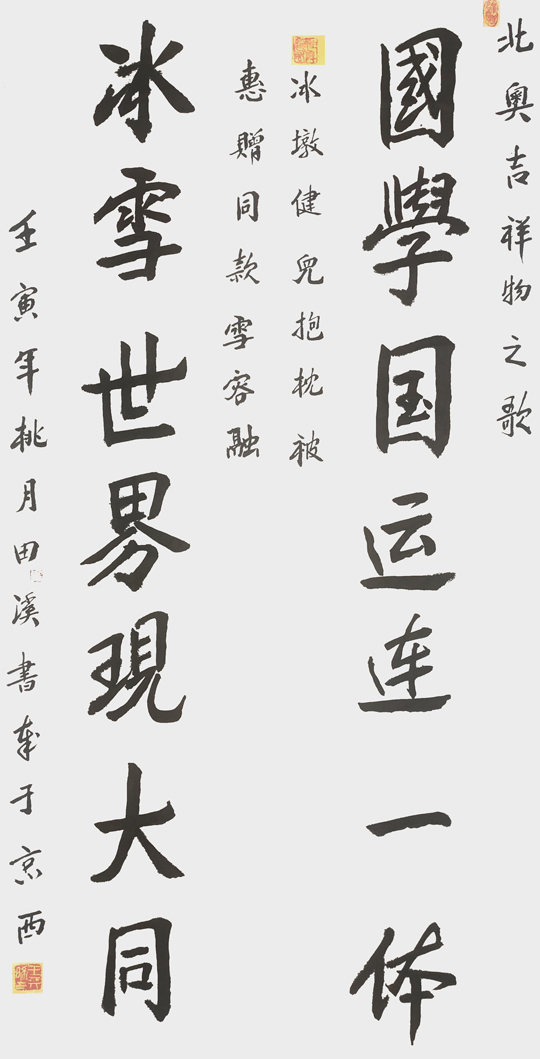 北奧吉祥物之歌
國學国运连一体
冰墩健兒抱枕被
惠贈同款雪容融
冰雪世界現大同
壬寅年桃月田溪書奉于京西